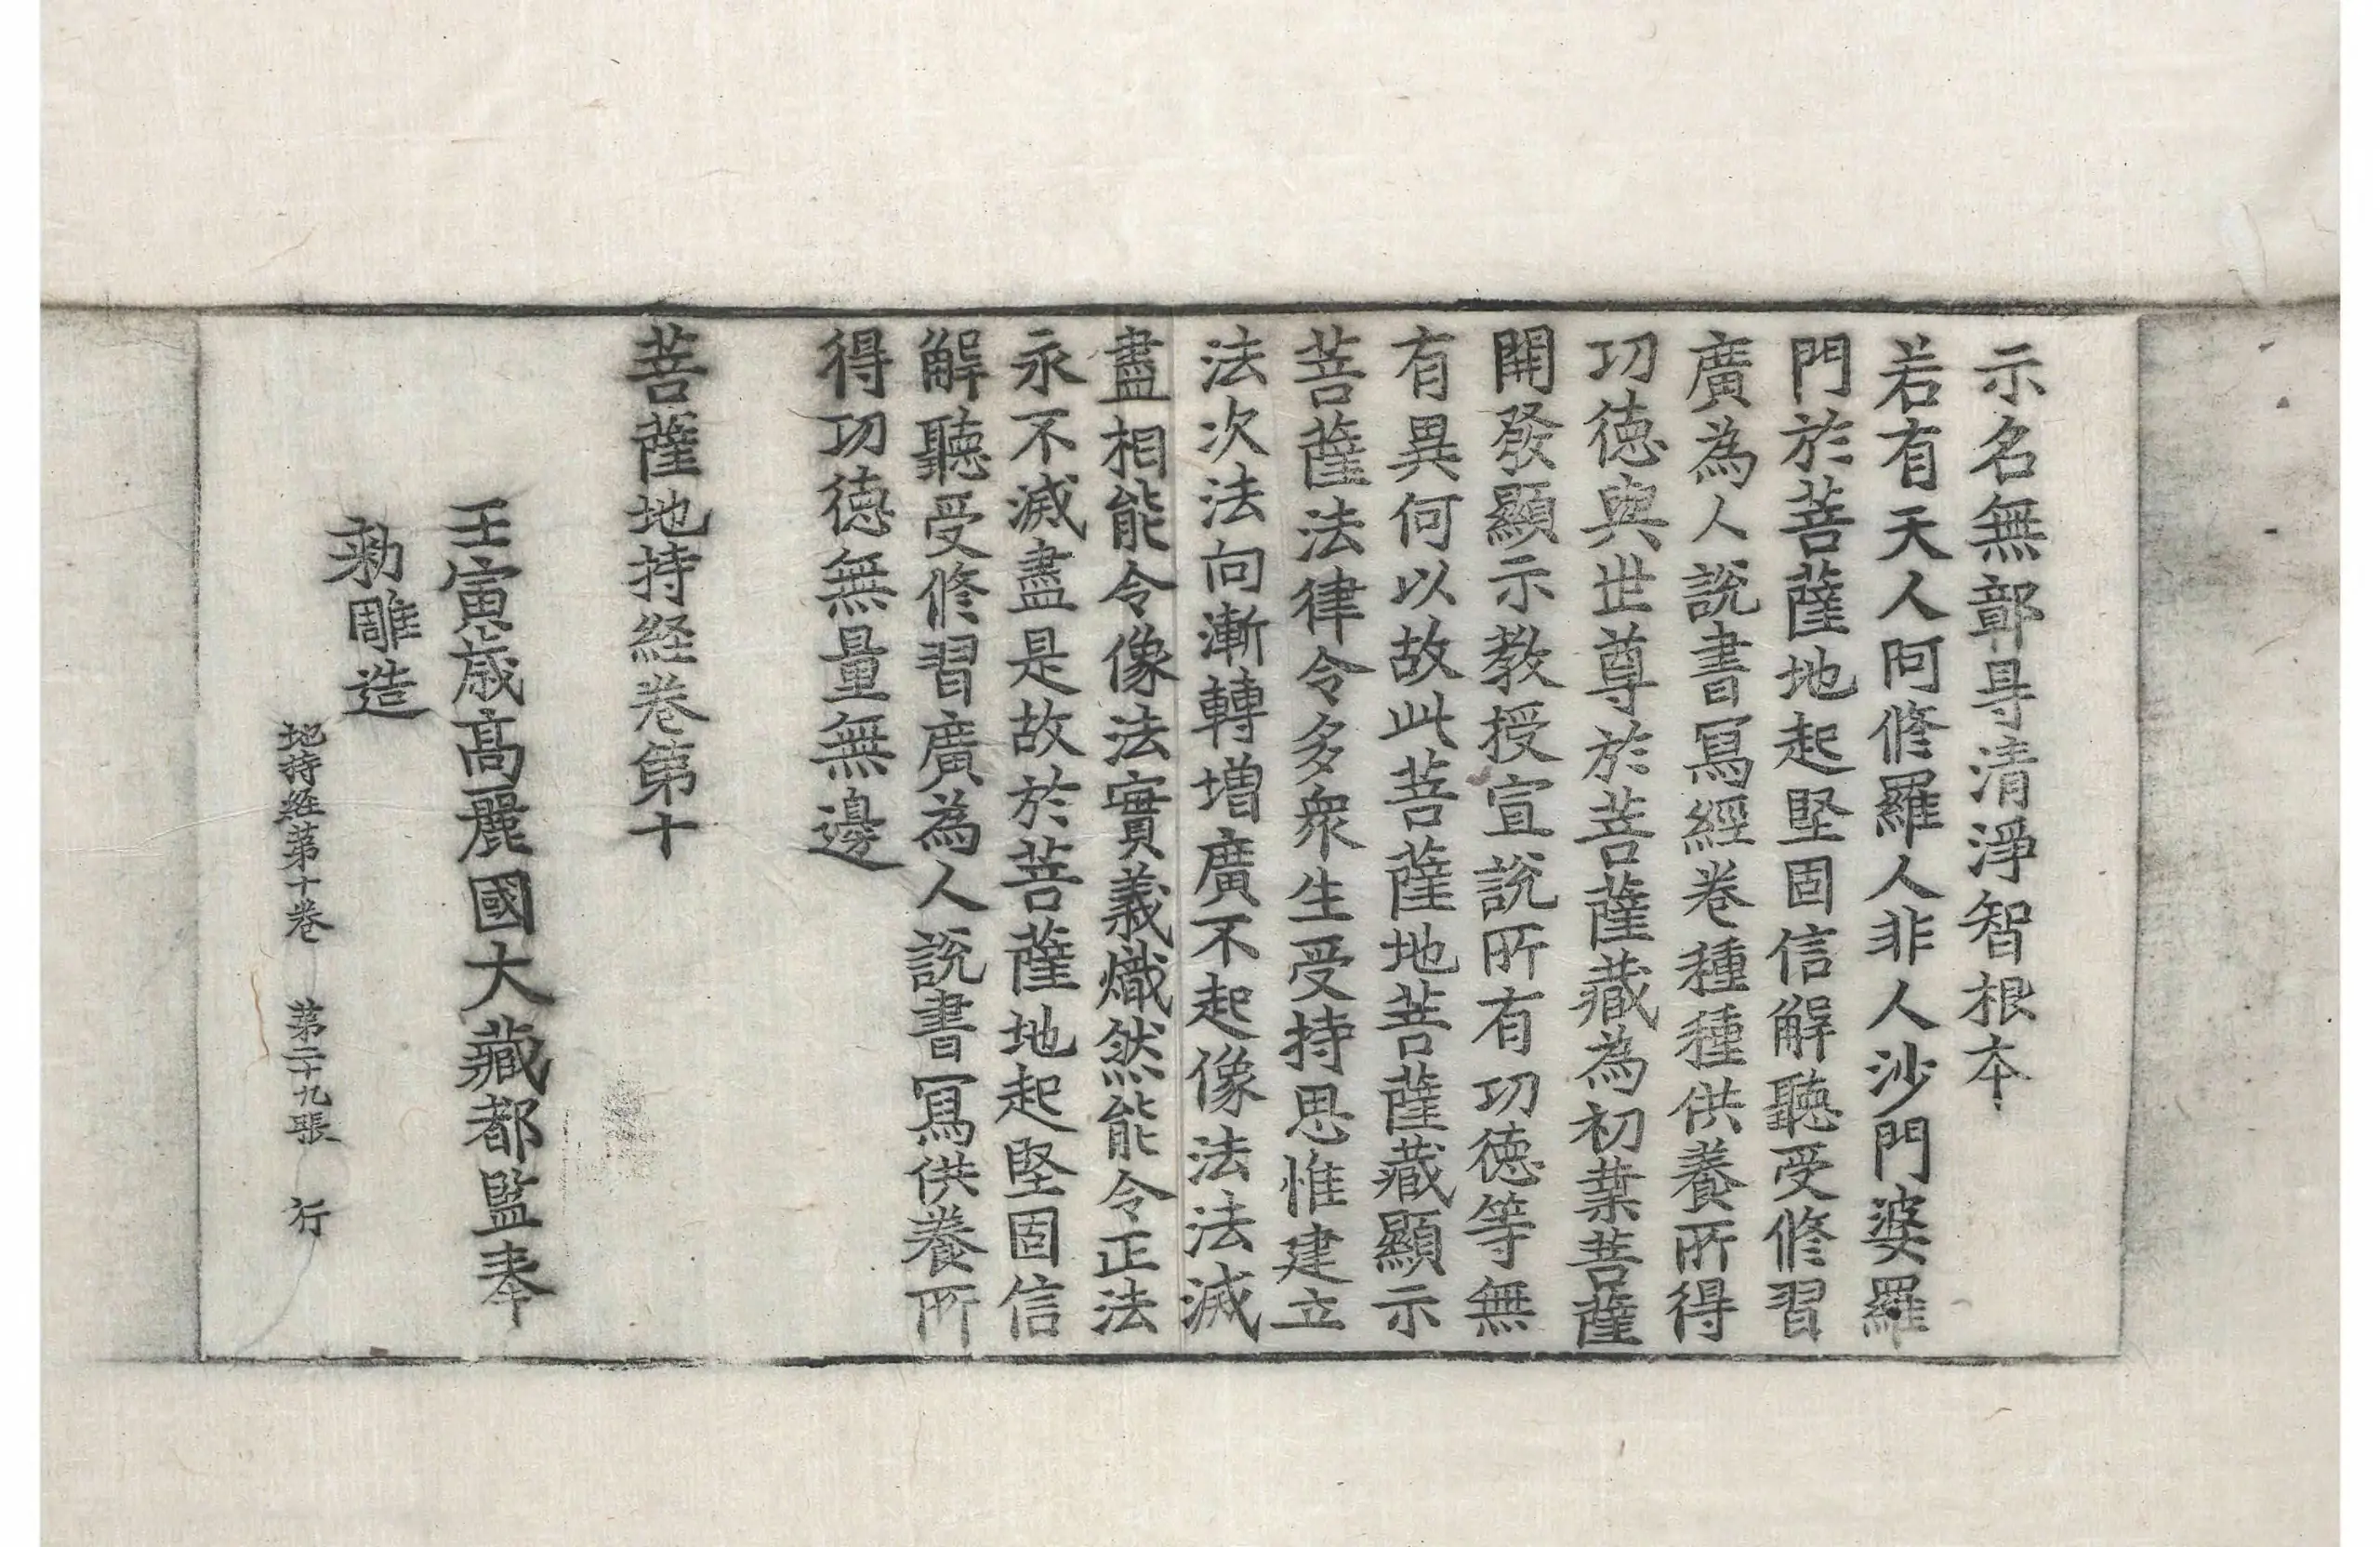 示名無鄣㝵清淨智根夲
若有天人阿修羅人非人沙門婆羅
門於菩薩地起堅固信解聽受修習
廣為人說書寫經卷種種供養所得
功德與世尊於菩薩藏為初業菩薩
開發顯示教授宣說所有功德等無
有異何以故此菩薩地菩薩藏顯示
菩薩法律令多衆生受持思惟建立
法次法向漸轉增廣不起像法法滅
盡相能令像法實義熾然能令正法
永不滅盡是故於菩薩地起堅固信
解聽受修習廣為人說書寫供養所
得功德無量無邊
菩薩地持経卷第十
壬寅歲高麗國大藏都監奉
勑雕造
地持経第十卷 第二十九張 行